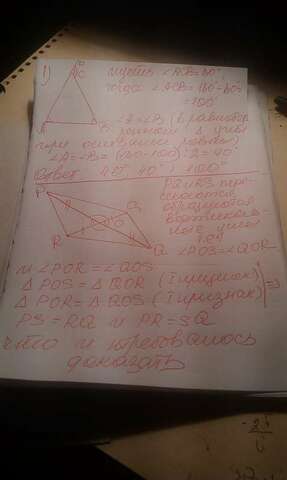 1)
C
пусть ∠ACD=80°
тогда ∠ACB=180°-80°=
=100°
A B
∠A=∠B (в равнобед
ренном Δ углы
при основании равны)
∠A=∠B=(180-100):2=40°
Ответ: 40°, 40°, 100°
PQ и RS пере-
секаются
образуются
вертикаль-
ные углы
∠POS=∠QOR
P
S
O
R
Q
и ∠POR=∠QOS
Δ POS=Δ QOR (I признак)
Δ POR=Δ QOS (I признак) =>
PS=RQ и PR=SQ
что и требовалось
доказать